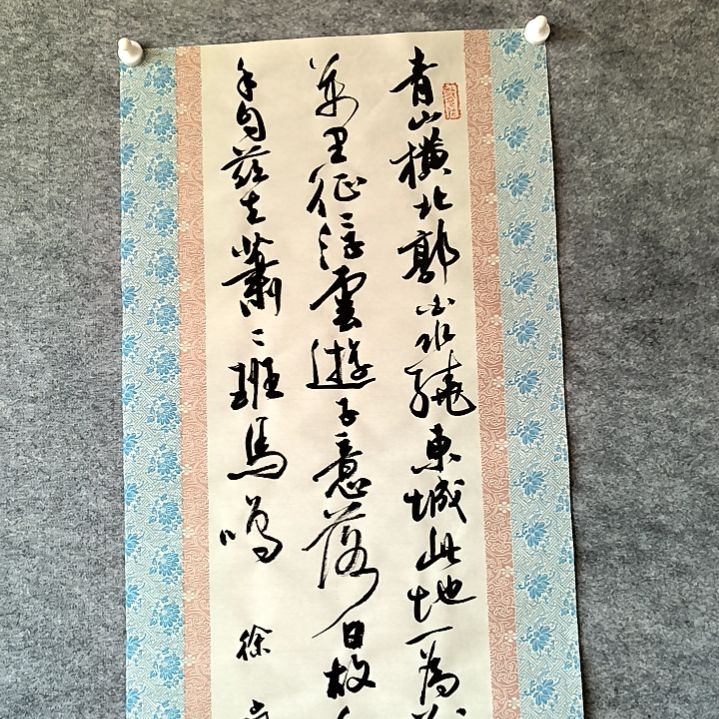 青山橫北郭白水繞東城此地一為
萬里征浮雲遊子意落日故
手自茲去蕭〻班馬鳴
徐